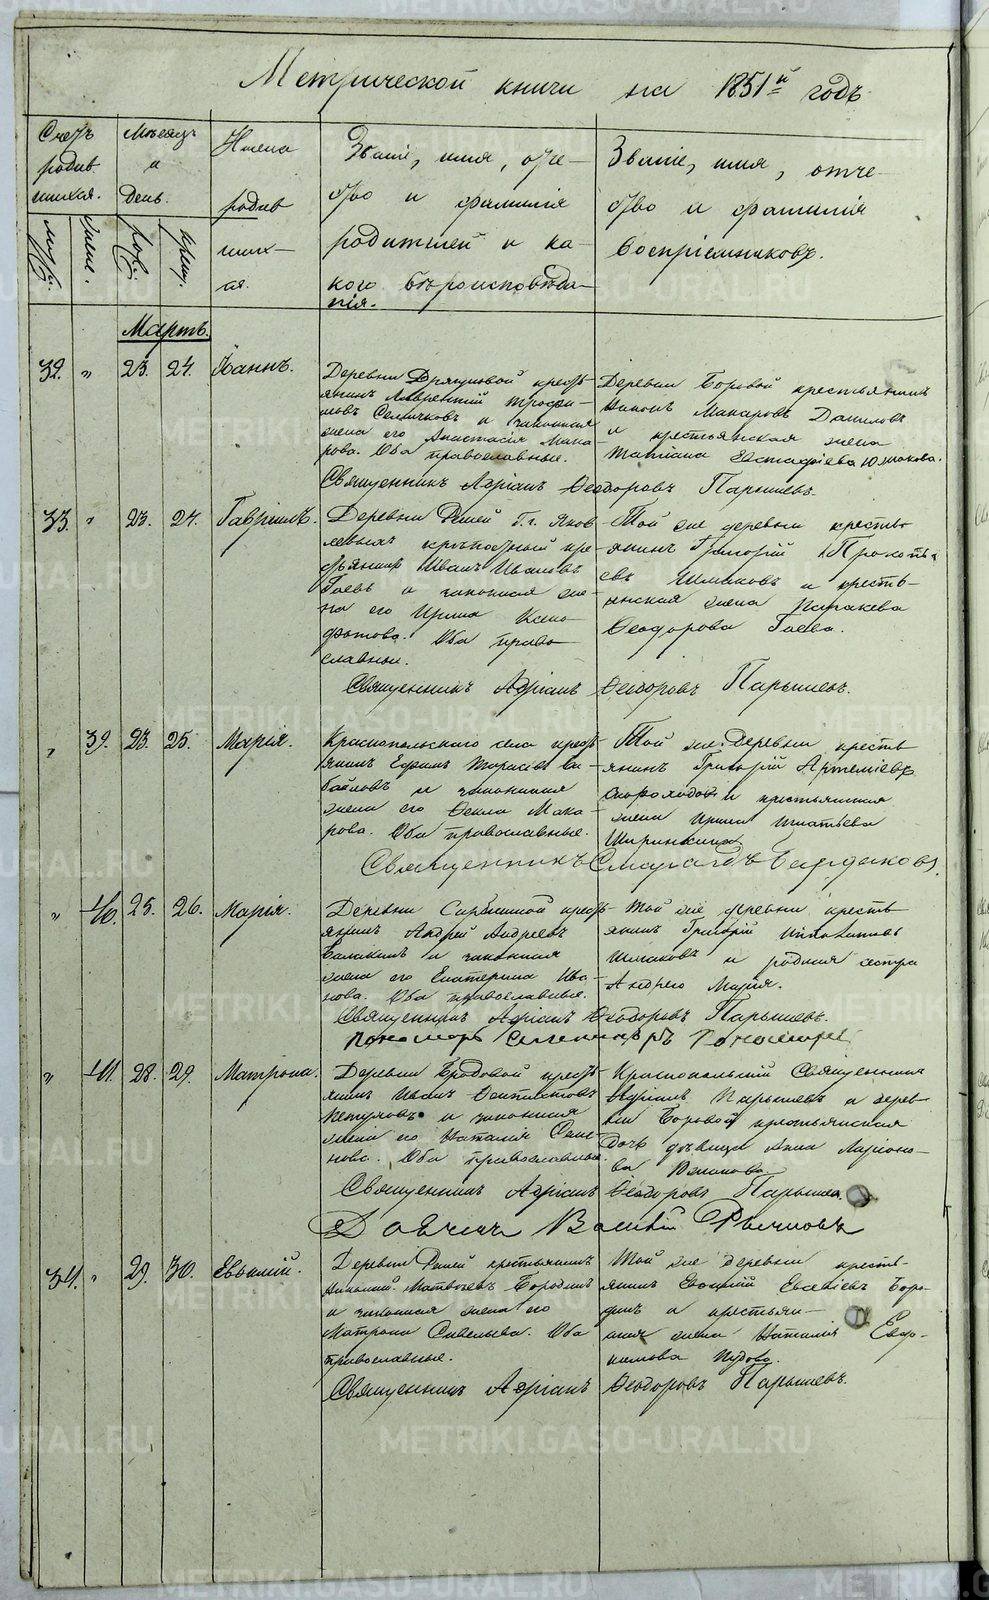 Метрической книги на 1851й годъ
Счетъ
родив
шихся.
Месяцъ
и
День.
Имена
родив
ших—
ся.
Званіе, имя, отче—
ство и фамилія
родителей и ка—
кого вѣроисповѣда—
нія.
Званіе, имя, отче—
ство и фамилія
воспріемниковъ.
муж.
жене.
рож.
крещ.
Мартъ.
32. " 23. 24. Іоаннъ.
крестьянинъ Лаврентій
и законная
жена его Анастасія Мака—
рова. Оба православные.
Деревни Боровой крестьянинъ
Макаровъ Даниловъ
и крестьянская жена
Татіана Евстафіева Южакова.
Священникъ Адріанъ Ѳеодоровъ Парышевъ.
33. " 23. 24. Гавріилъ.
Деревни Г.г. Яков
левыхъ крѣпостный кре—
стьянинъ Иванъ Ивановъ
Гаевъ и законная же—
на его Ирина Ксено—
фонтова. Оба право
славные.
Той же деревни кресть
янинъ Григорій Прокопь
евъ Шмаковъ и кресть—
янская жена
Ѳеодорова Гаева.
Священникъ Адріанъ Ѳеодоровъ Парышевъ.
" 39. 23. 25. Марія.
Краснопольскаго села крест
янинъ Ефимъ Тарасовъ
и законная
жена его Ѳекла Мака
рова. Оба православные.
Той же деревни кресть
янинъ Григорій Артеміевъ
Скороходовъ и крестьянская
жена Ирина Игнатьева
Ширинкина
Священникъ Смарагдъ Бирюковъ.
" 40. 25. 26. Марія.
Деревни крест
янинъ Андрей Андреевъ
и законная
жена его Екатерина Ива
нова. Оба православные.
Той же деревни кресть
янинъ Григорій Ипполитовъ
Шмаковъ и родная сестра
Андрею Марія.
Священникъ Адріанъ Ѳеодоровъ Парышевъ.
Пономарь
" 41. 28. 29. Матрона.
Деревни Бродовой крест
янинъ Иванъ
Петуховъ и законная
жена его Наталія Семе
нова. Оба православные.
Краснопольскій Священникъ
Адріанъ Парышевъ и дерев
ни Боровой крестьянская
дочь дѣвица Анна Ларіоно—
ва
Священникъ Адріанъ Ѳеодоровъ Парышевъ
Дьячекъ Василій Рычковъ
34. " 29. 30. Евѳимій.
Деревни крестьянинъ
Николай Матвѣевъ Бородинъ
и законная жена его
Матрона Савельева. Оба
православные.
Той же деревни кресть—
янинъ Евсевіевъ Боро—
динъ и крестьян—
ская жена Наталія Евдо—
кимова
Священникъ Адріанъ Ѳеодоровъ Парышевъ.
METRIKI.GASO-URAL.RU